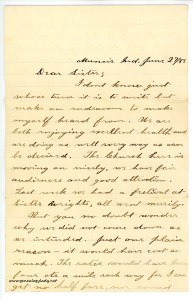 Muncie Ind. June 27/88
Dear Sister;
I dont know just
whose turn it is to write but
make an endeavor to make
myself heard from. We are
both enjoying excellent health and
are doing as well every way as can
be desired. The Church here is
moving on nicely, we have fair
audiences and good attention.
Last week we had a festival at
Sister Wrights, all went merrily.
But you no doubt wonder
why we did not come down as
we intended. Just one plain
reason - it would have cost so
much. The rates would have been
four cts a mile each way for I can
get no half fare
www.genealogylady.net